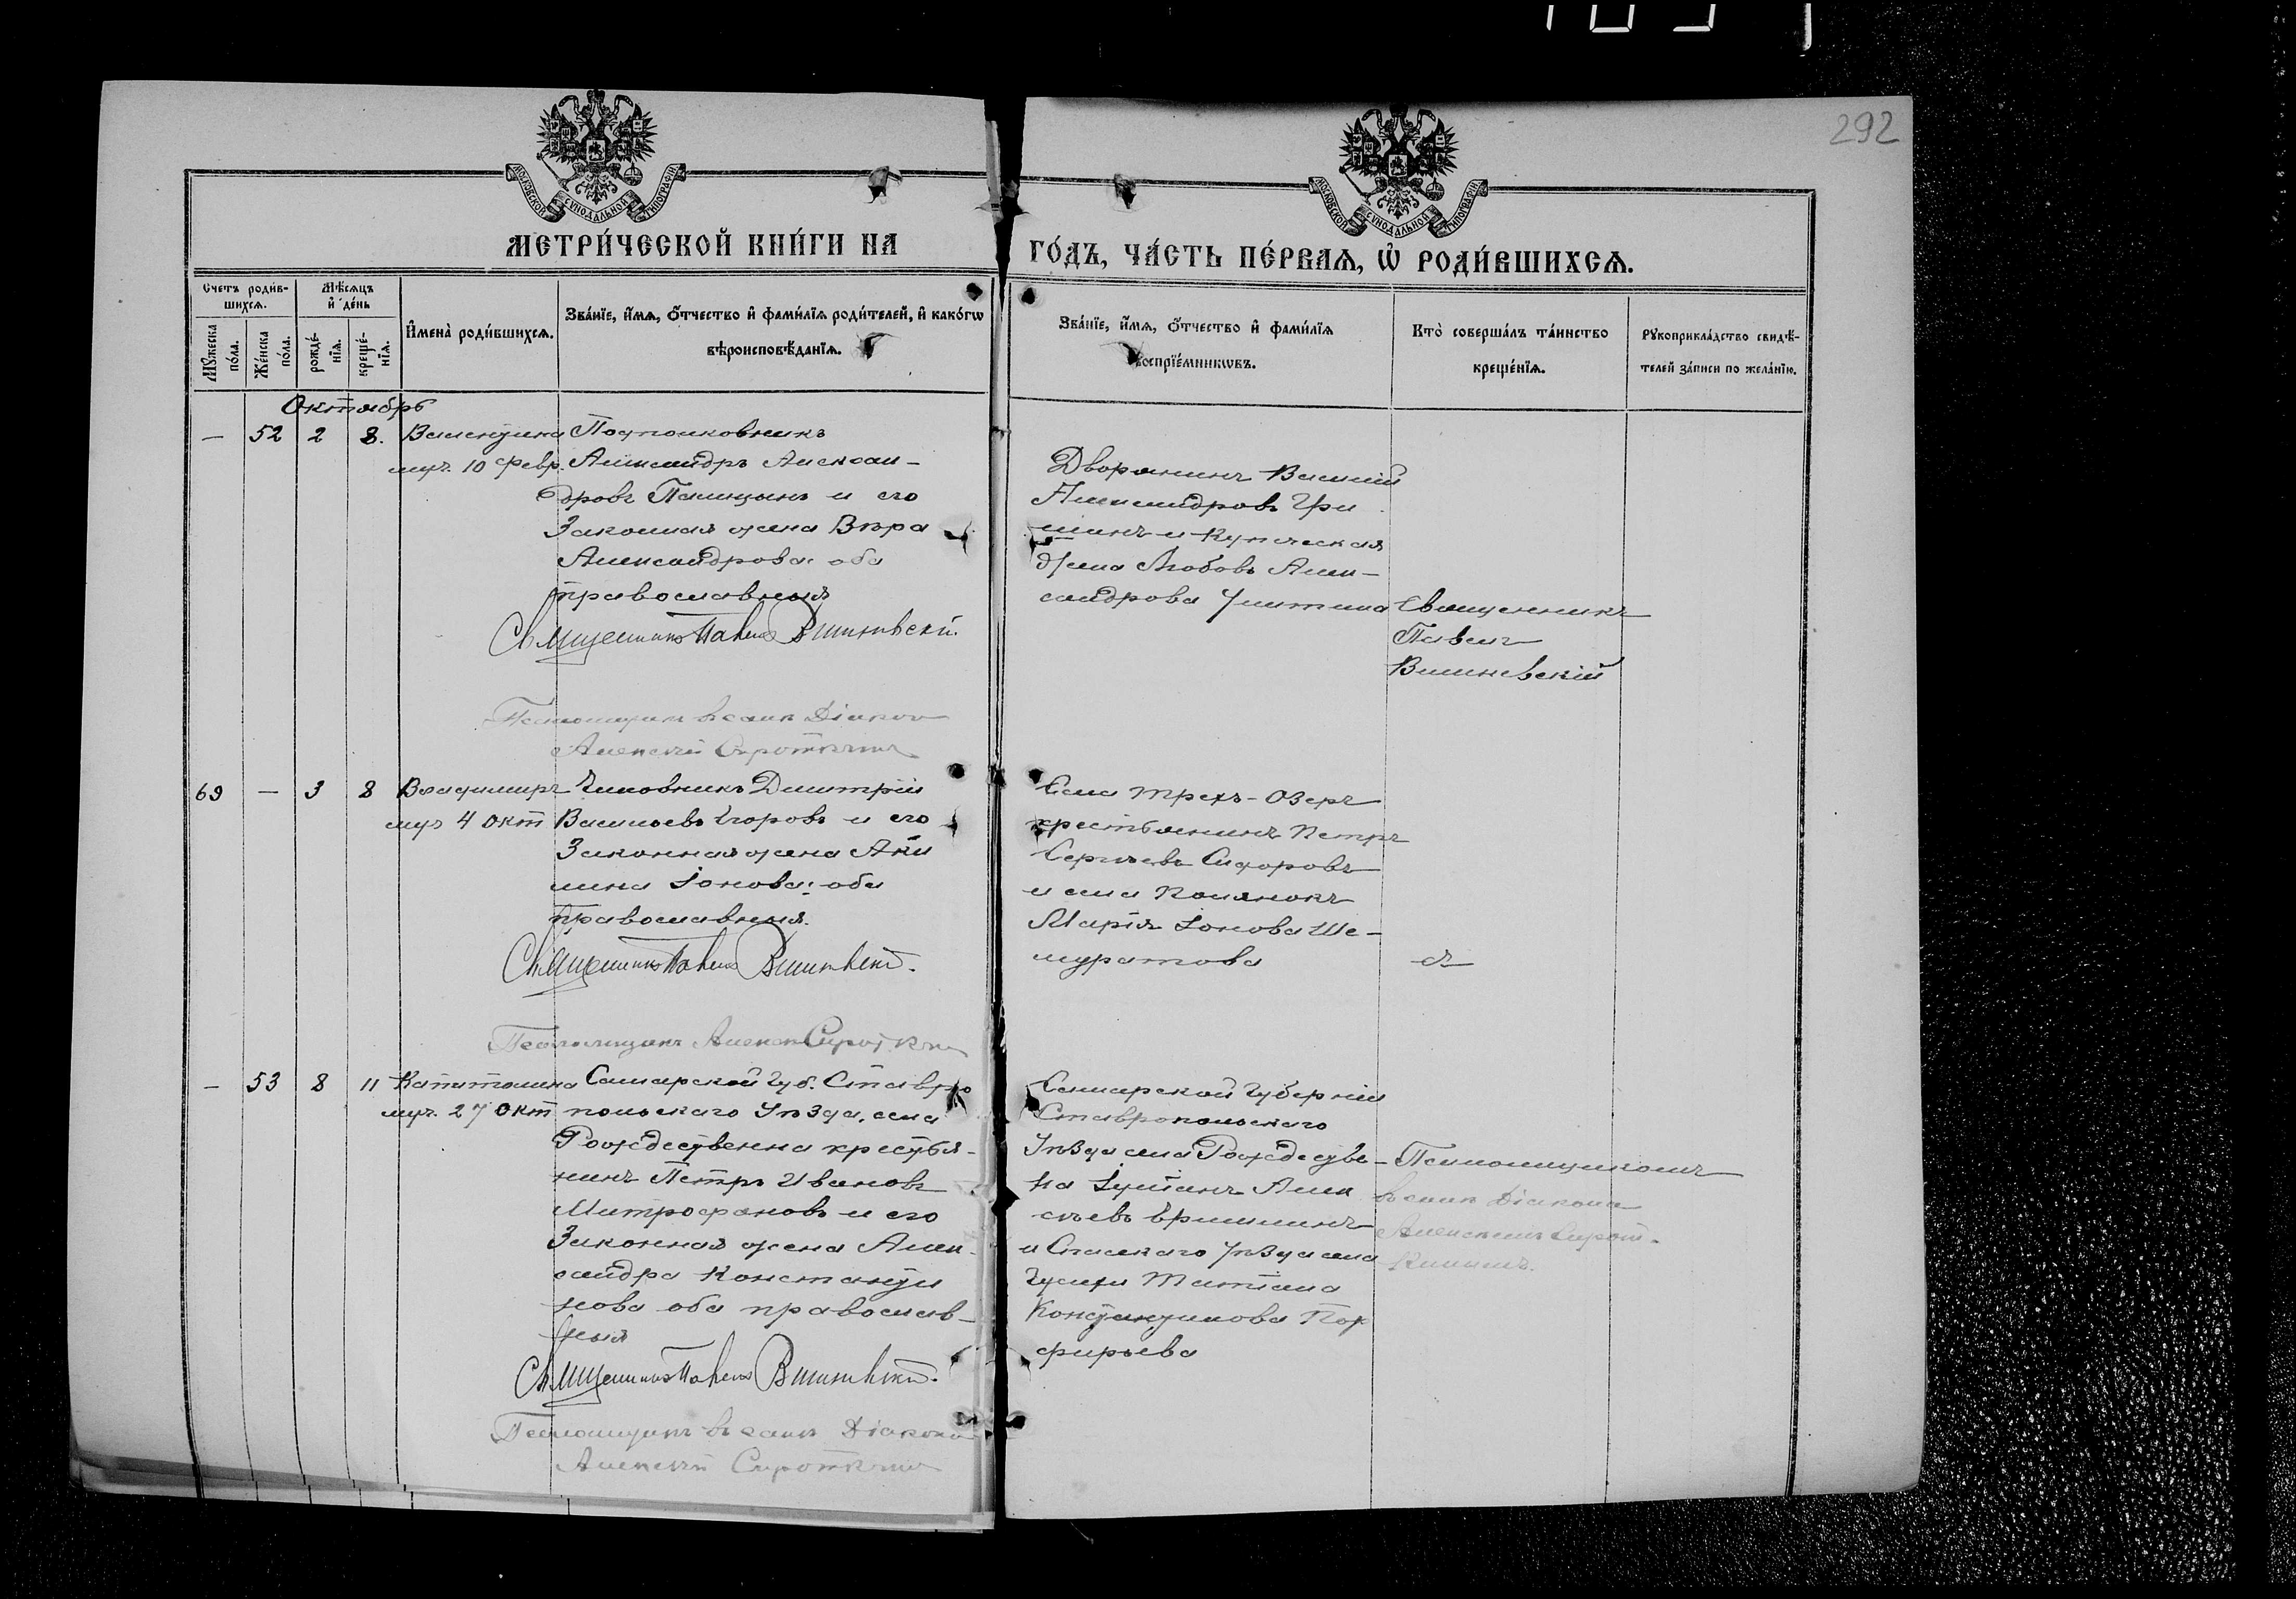 292
МОСКОВСКОЙ СУНОДАЛЬНОЙ ТИПОГРАФІИ
МОСКОВСКОЙ СУНОДАЛЬНОЙ ТИПОГРАФІИ
МЕТРИ́ЧЕСКОЙ КНИ́ГИ НА
ГО́ДЪ, ЧА́СТЬ ПЕ́РВАѦ, Ѡ҆ РОДИ́ВШИХСѦ.
Счетъ роди́в-
шихсѧ.
Мѣ́сѧцъ
и҆ де́нь
Мꙋ́жеска
по́ла.
Же́нска
по́ла.
рожде́-
нїѧ.
креще́-
нїѧ.
И҆мена̀ роди́вшихсѧ.
Зва́нїе, и҆́мѧ, ѻ҆́тчество и҆ фами́лїѧ роди́телей, и҆ како́гѡ
вѣроисповѣ́данїѧ.
Зва́нїе, и҆́мѧ, ѻ҆́тчество и҆ фами́лїѧ
воспрїе́мникѡвъ.
Кто̀ соверша́лъ та́инство
креще́нїѧ.
Рꙋкоприкла́дство свидѣ́-
телей за́писи по жела́нїю.
Октябрь
— 52 2 8. Валентина Подполковникъ
муч. 10 февр. Александръ Алексан-
дровъ Палицынъ и его
Законная жена Вѣра
Александрова: оба
православныя
Священникъ Павелъ Вишневскій.
Псаломщикъ въ санѣ Діакона
Алексѣй Сироткинъ
Дворянинъ Василій
Александровъ Гри
шинъ и Купеческая
жена Любовь Алек-
сандрова
Священникъ
Павелъ
Вишневскій
69 — 3 8 Владимиръ Чиновникъ Димитрій
муч 4 окт Васильевъ Егоровъ и его
Законная жена Аки
лина Іонова: оба
православныя.
Священникъ Павелъ Вишневскій.
Псаломщикъ Алексѣй Сироткинъ
Села Трехъ-Озеръ
крестьянинъ Петръ
Сергѣевъ Сидоровъ
и села
Марія Іонова Ше-
муратова
— 53 8 11 Капитолина Самарской Губ. Ставро
муч. 27 окт польскаго Уѣзда, села
Рождествена крестья-
нинъ Петръ Ивановъ
Митрофановъ и его
Законная жена Алек-
сандра Константи
нова оба православ-
ныя
Священникъ Павелъ Вишневскій.
Псаломщикъ въ санѣ Діакона
Алексѣй Сироткинъ
Самарской Губерніи
Ставропольскаго
Уѣзда села Рождестве-
на Іуліанъ Алек
сѣевъ
и Спасскаго Уѣзда села
Татіана
Константинова Пор
фирьева
Псаломщикомъ
въ санѣ Діакона
Алексѣемъ Сирот-
кинымъ.